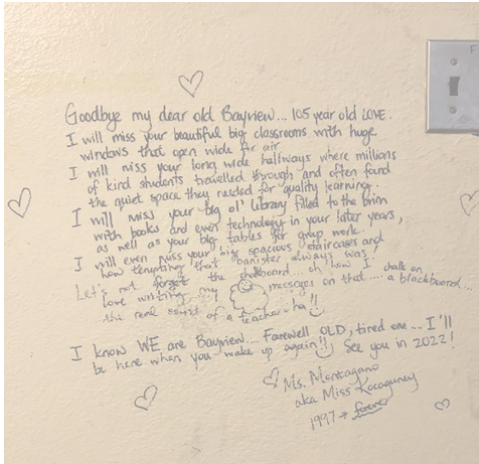 Goodbye my dear old Bayview... 105 year old LOVE.
I will miss your beautiful big classrooms with huge
windows that open wide for air.
I will miss your long wide hallways where millions
of kind students travelled through and often found
the quiet space they needed for quality learning.
I will miss your big ol' library filled to the brim
with books and even technology in your later years,
as well as your big tables for group work.
I will even miss your big spacious staircases and
how tempting that banister always was.
Let's not forget the chalkboard... oh how I
love writing my messages on that.... a blackboard...
the real scent of a teacher - ha!!
I know WE are Bayview... Farewell OLD, tired one... I'll
be here when you wake up again!! See you in 2022!
Ms. Montagano
aka Miss Kocaguney
1997 → forever